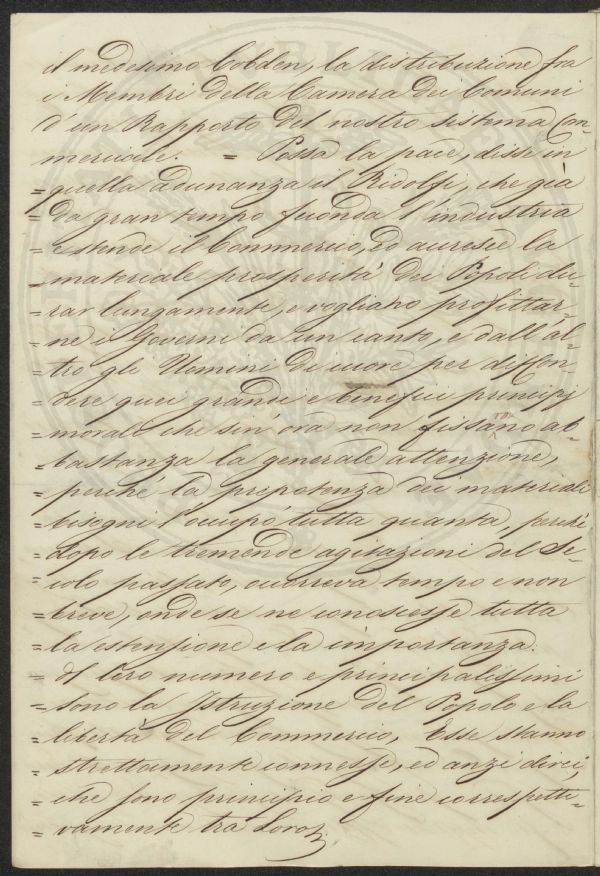 il medesimo Cobden, la distribuzione fra
i Membri della Camera dei Comuni
d'un Rapporto del nostro sistema Com-
merciale. = Possa la pace, disse in
= quella adunanza il Ridolfi, che già
= da gran tempo feconda l'industria
= estende il Commercio, ed accresce la
= materiale prosperità dei Popoli du-
= rar lungamente, e vogliano profittar-
= ne i Governi da un canto, e dall'al-
= tro gli Uomini di cuore per diffon-
= dere quei grandi e benefici principj
= morali che sin'ora non fissarono ab-
= bastanza la generale attenzione,
= perchè la prepotenza dei materiali
= bisogni l'occupò tutta quanta, perchè
= dopo le tremende agitazioni del Se-
= colo passato, occorreva tempo e non
= breve, onde se ne conoscesse tutta
= la estensione e la importanza.
= Al loro numero e principalissimi
= sono la Istruzione del Popolo e la
= libertà del Commercio, Esse stanno
= strettamente connesse, ed anzi direi,
= che sono principio e fine correspetti-
= vamente tra Loro